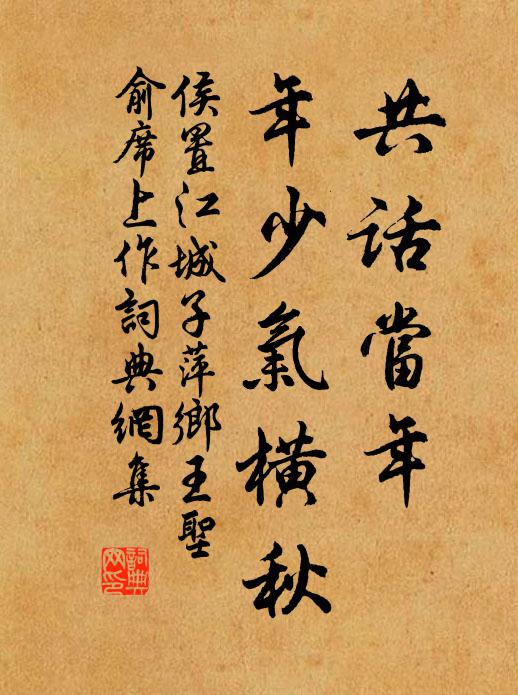 共話當年
年少氣橫秋
侯置江城子萍鄉王聖
俞席上作詞典網集
詞典網印